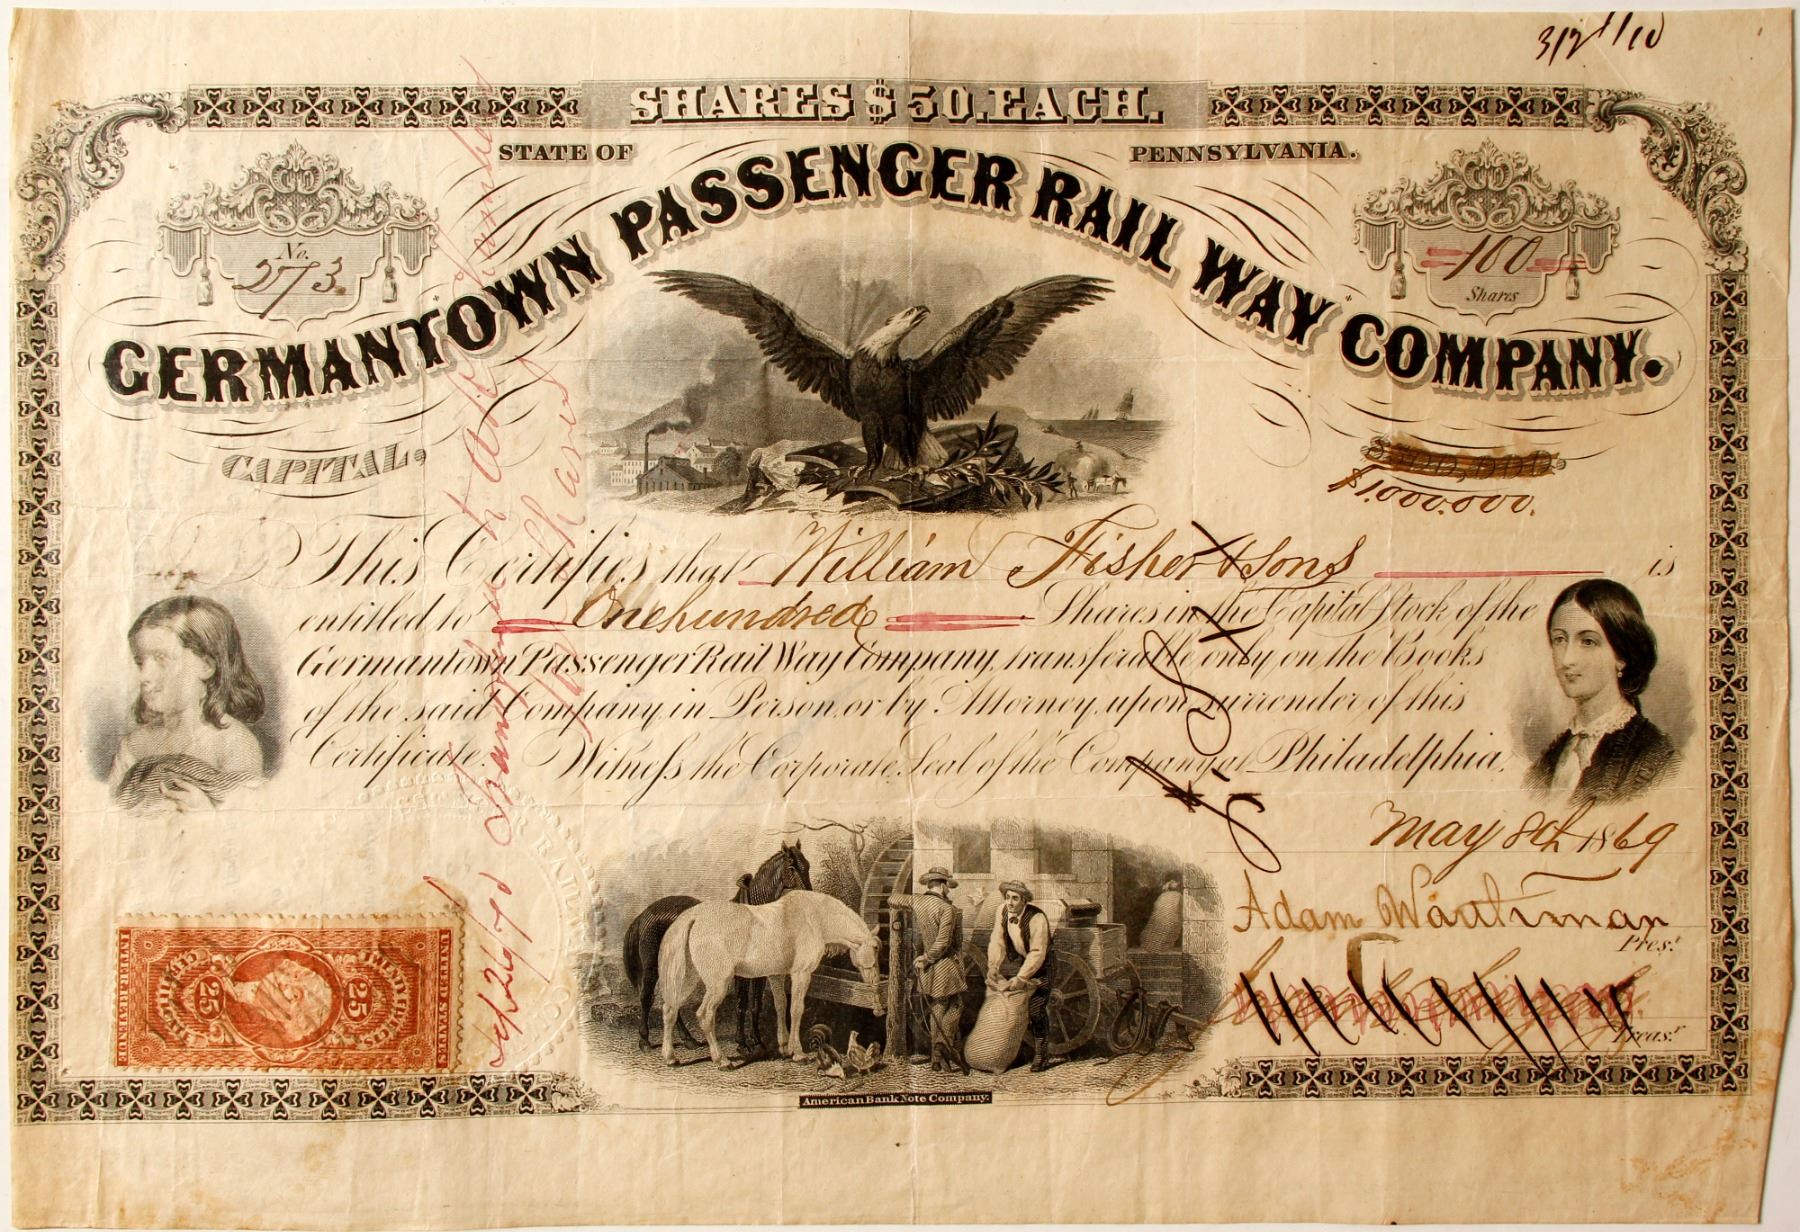 SHARES $50. EACH.
STATE OF PENNSYLVANIA.
GERMANTOWN PASSENGER RAIL WAY COMPANY.
No.
273.
100
Shares
CAPITAL,
$500,000
$1.000.000.
This Certifies that William Fisher & Sons is
entitled to One hundred Shares in the Capital Stock of the
Germantown Passenger Rail Way Company, transferable only on the Books
of the said Company, in Person, or by Attorney, upon surrender of this
Certificate. Witness the Corporate Seal of the Company at Philadelphia,
May 8th 1869
Adam Warthman
Pres.t
Treas.r
UNITED STATES
TWENTY FIVE CTS
25
25
INTER. REVENUE
American Bank Note Company.
Shares